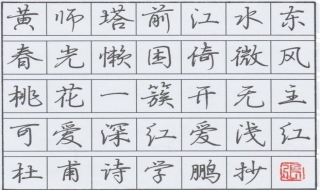 黄师塔前江水东
春光懒困倚微风
桃花一簇开无主
可爱深红爱浅红
杜甫诗学鹏抄